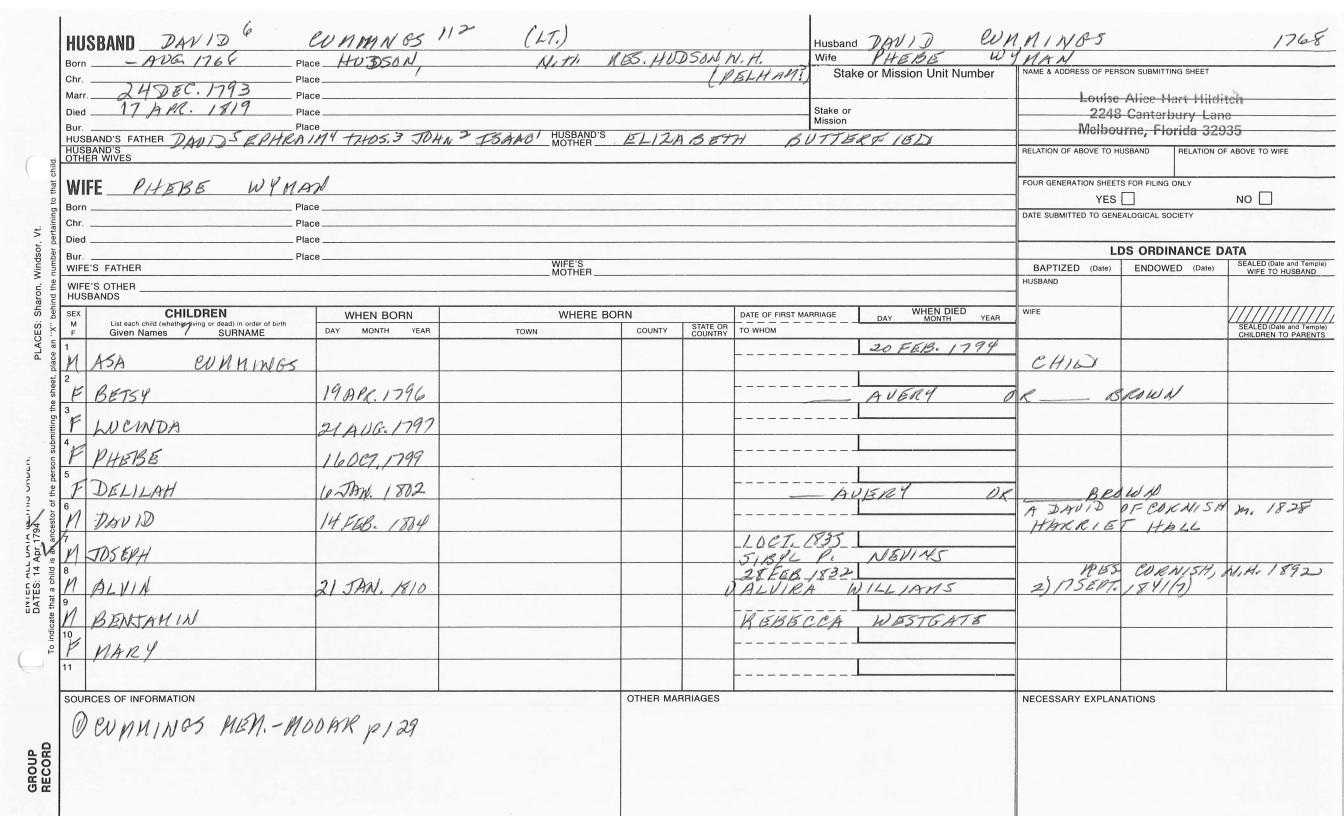 HUSBAND DAVID 6 CUMMINGS 112 (LT.)
Born - AUG 1768 Place HUDSON, N.H. RES. HUDSON N.H.
Chr. Place (PELHAM?)
Marr. 24 DEC. 1793 Place
Died 17 APR. 1819 Place
Bur. Place
HUSBAND'S FATHER DAVID 5 EPHRAIM 4 THOS. 3 JOHN 2 ISAAC 1 HUSBAND'S MOTHER ELIZABETH BUTTERFIELD
HUSBAND'S OTHER WIVES
Husband DAVID CUMMINGS 1768
Wife PHEBE WYMAN
Stake or Mission Unit Number
Stake or Mission
NAME & ADDRESS OF PERSON SUBMITTING SHEET
Louise Alice Hart Hilditch
2248 Canterbury Lane
Melbourne, Florida 32935
RELATION OF ABOVE TO HUSBAND RELATION OF ABOVE TO WIFE
FOUR GENERATION SHEETS FOR FILING ONLY
YES NO
DATE SUBMITTED TO GENEALOGICAL SOCIETY
WIFE PHEBE WYMAN
Born Place
Chr. Place
Died Place
Bur. Place
WIFE'S FATHER WIFE'S MOTHER
WIFE'S OTHER HUSBANDS
LDS ORDINANCE DATA
BAPTIZED (Date) ENDOWED (Date) SEALED (Date and Temple) WIFE TO HUSBAND
HUSBAND
WIFE
SEALED (Date and Temple) CHILDREN TO PARENTS
SEX M F
CHILDREN
List each child (whether living or dead) in order of birth
Given Names SURNAME
WHEN BORN
DAY MONTH YEAR
WHERE BORN
TOWN COUNTY STATE OR COUNTRY
DATE OF FIRST MARRIAGE
TO WHOM
WHEN DIED
DAY MONTH YEAR
1 M ASA CUMMINGS 20 FEB. 1794 CHILD
2 F BETSY 19 APR. 1796 ___ AVERY OR ___ BROWN
3 F LUCINDA 21 AUG. 1797
4 F PHEBE 16 OCT. 1799
5 F DELILAH 6 JAN. 1802 ___ AVERY OR ___ BROWN
6 M DAVID 14 FEB. 1804 A DAVID OF CORNISH m. 1828
HARRIET HALL
7 M JOSEPH 1 OCT. 1835
SIBYL P. NEVINS
8 M ALVIN 21 JAN. 1810 28 FEB 1832 RES CORNISH, N.H. 1892
1) ALVIRA WILLIAMS 2) 17 SEPT. 1841(?)
9 M BENJAMIN REBECCA WESTGATE
10 F MARY
11
SOURCES OF INFORMATION
① CUMMINGS MEM.-MOOAR p129
OTHER MARRIAGES
NECESSARY EXPLANATIONS
DATES: 14 Apr 1794 PLACES: Sharon, Windsor, Vt.
To indicate that a child is an ancestor of the person submitting the sheet, place an "X" behind the number pertaining to that child.
GROUP RECORD